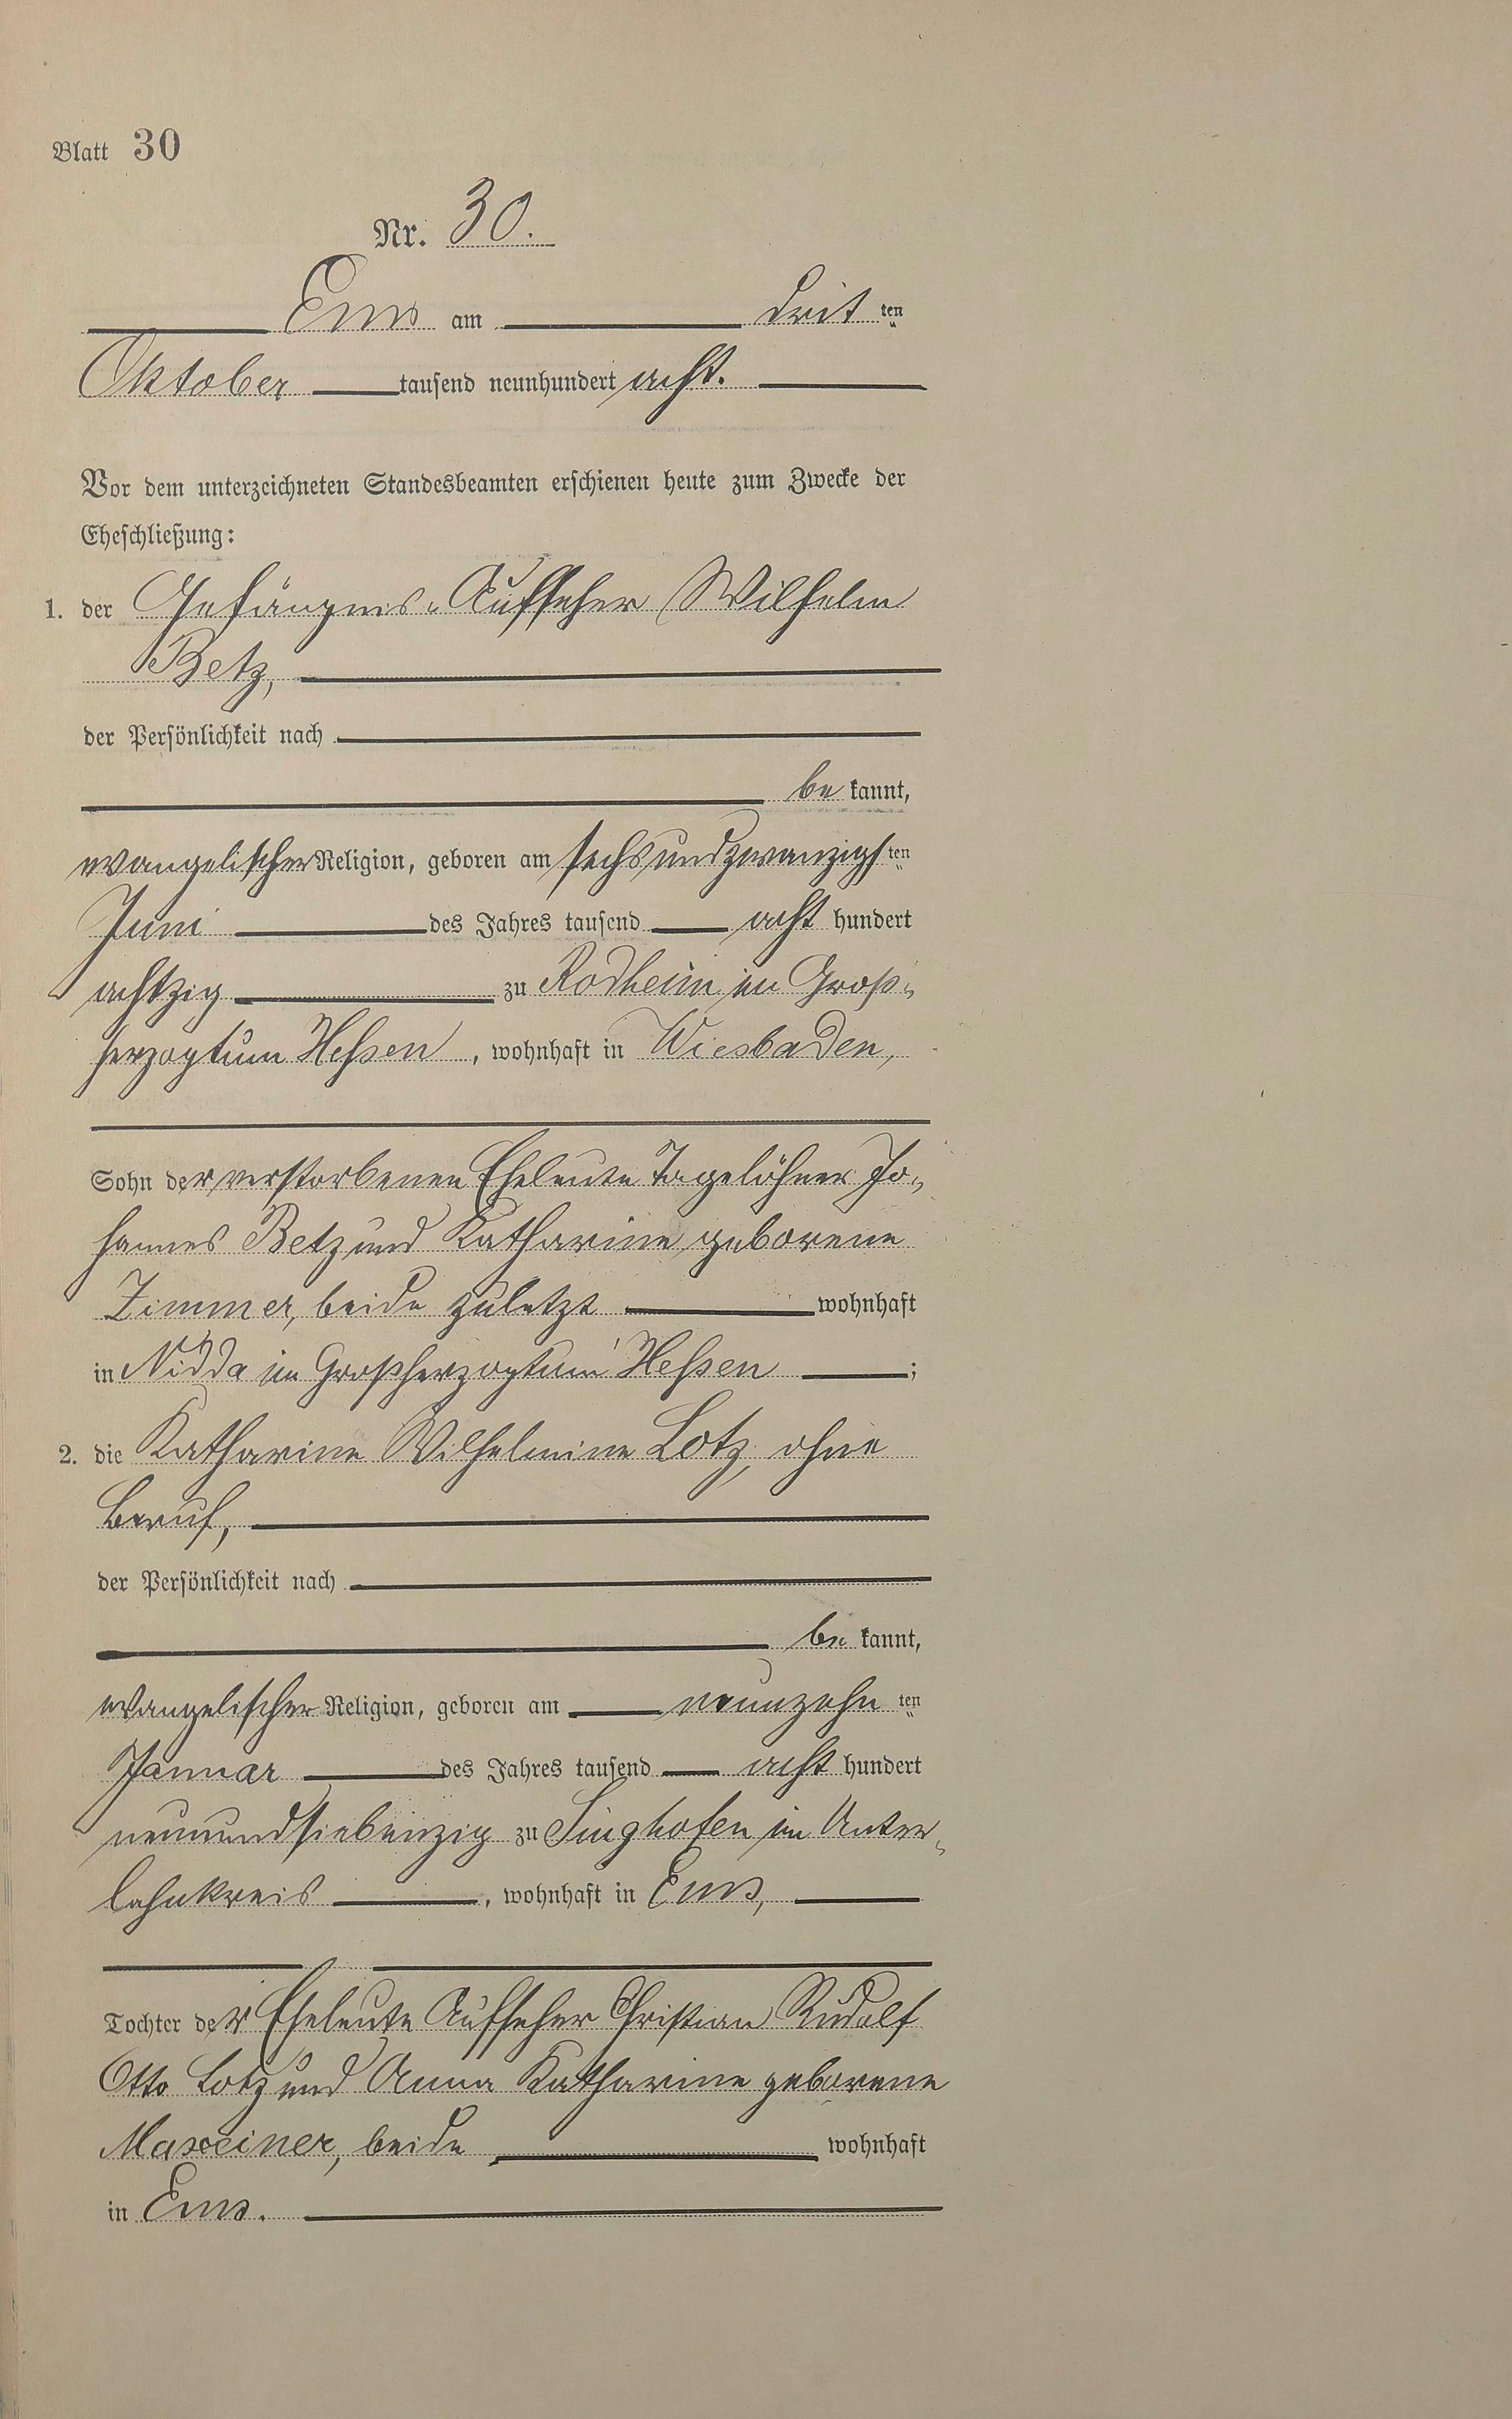 Blatt 30
Nr. 30.
Ems am dritten
Oktober tausend neunhundert acht.
Vor dem unterzeichneten Standesbeamten erschienen heute zum Zwecke der
Eheschließung:
1. der Gefängnis-Aufseher Wilhelm
Betz,
der Persönlichkeit nach
be kannt,
evangelischer Religion, geboren am sechsundzwanzigsten
Juni des Jahres tausend acht hundert
achtzig zu Rodheim im Groß-
herzogtum Hessen, wohnhaft in Wiesbaden,
Sohn der verstorbenen Eheleute Tagelöhner Jo-
hannes Betz und Katharine geborene
Zimmer, beide zuletzt wohnhaft
in Nidda im Großherzogtum Hessen;
2. die Katharine Wilhelmine Lotz, ohne
Beruf,
der Persönlichkeit nach
be kannt,
evangelischer Religion, geboren am neunzehnten
Januar des Jahres tausend acht hundert
neunundsiebenzig zu Singhofen im Unter-
lahnkreis, wohnhaft in Ems,
Tochter der Eheleute Aufseher Christian Rudolf
Otto Lotz und Anna Katharine geborene
Maxeiner, beide wohnhaft
in Ems.